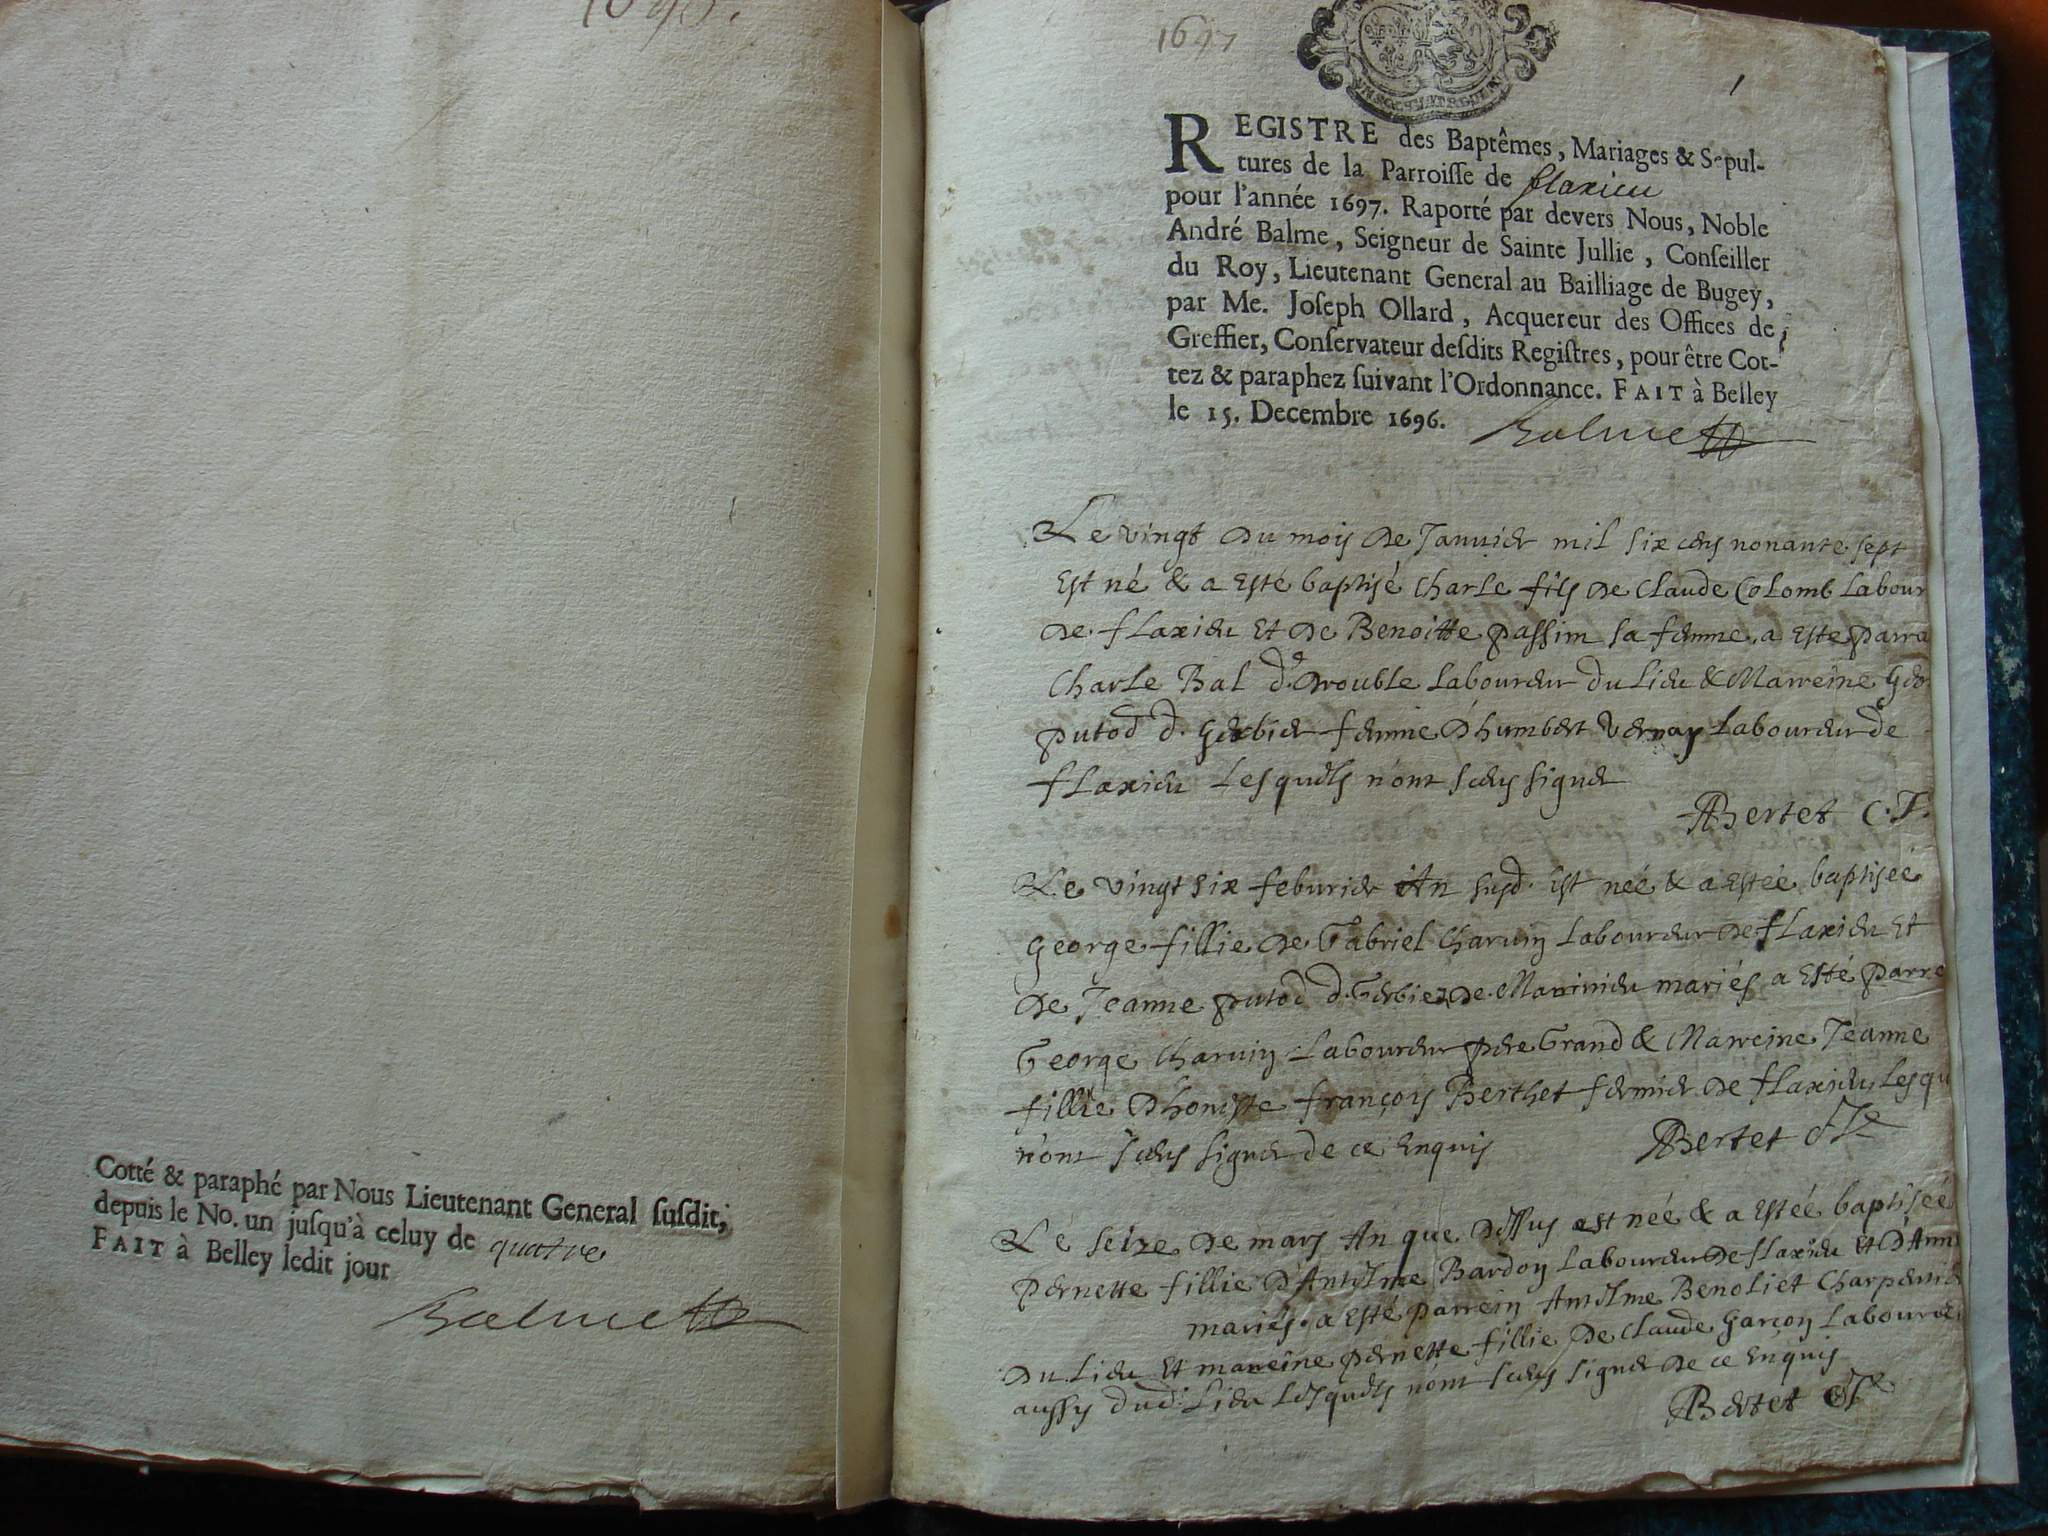 Cotté & paraphé par Nous Lieutenant General ſuſdit,
depuis le No. un juſqu'à celuy de quatre
FAIT à Belley ledit jour
Balme
1697
1
REGISTRE des Baptêmes, Mariages & Sepul-
tures de la Parroiſſe de flaxieu
pour l'année 1697. Raporté par devers Nous, Noble
André Balme, Seigneur de Sainte Jullie, Conſeiller
du Roy, Lieutenant General au Bailliage de Bugey,
par Me. Joſeph Ollard, Acquereur des Offices de
Greffier, Conſervateur deſdits Regiſtres, pour être Cot-
tez & paraphez ſuivant l'Ordonnance. FAIT à Belley
le 15. Decembre 1696.
Balme
Le vingt du mois de Janvier mil six cens nonante sept
Est né & a Esté baptisé Charle fils de Claude Colomb Labour
de flaxieu Et de Benoitte passim sa femme a Este parra
Charle Bal d. Laboureur du Lieu & Marreine
putod d. Gerbier femme d'humbert vernay Laboureur de
flaxieu Lesquels n'ont sceus signer
Bertet C. F.
Le vingt six feburier An susd. est née & a Estée baptisée
George fillie de Gabriel Charvin Laboureur de flaxieu Et
de Jeanne putod d. Gerbier de Marinieu mariés a Esté parre
George Charvin Laboureur pere Grand & Marreine Jeanne
fillie d'honeste françois Berthet fermier de flaxieu Lesqu
n'ont sceus signer de ce Enquis
Bertet
Le seize de mars An que dessus est née & a Estée baptisée
pernette fillie d'Antelme Bardon Laboureur de flaxieu Et d'Ann
mariés a Esté parrein Antelme Benoliet Charpentie
du Lieu Et marreine pernette fillie de Claude Garçon Laboureu
aussy dud. Lieu Lesquels n'ont sceus signer de ce Enquis
Bertet